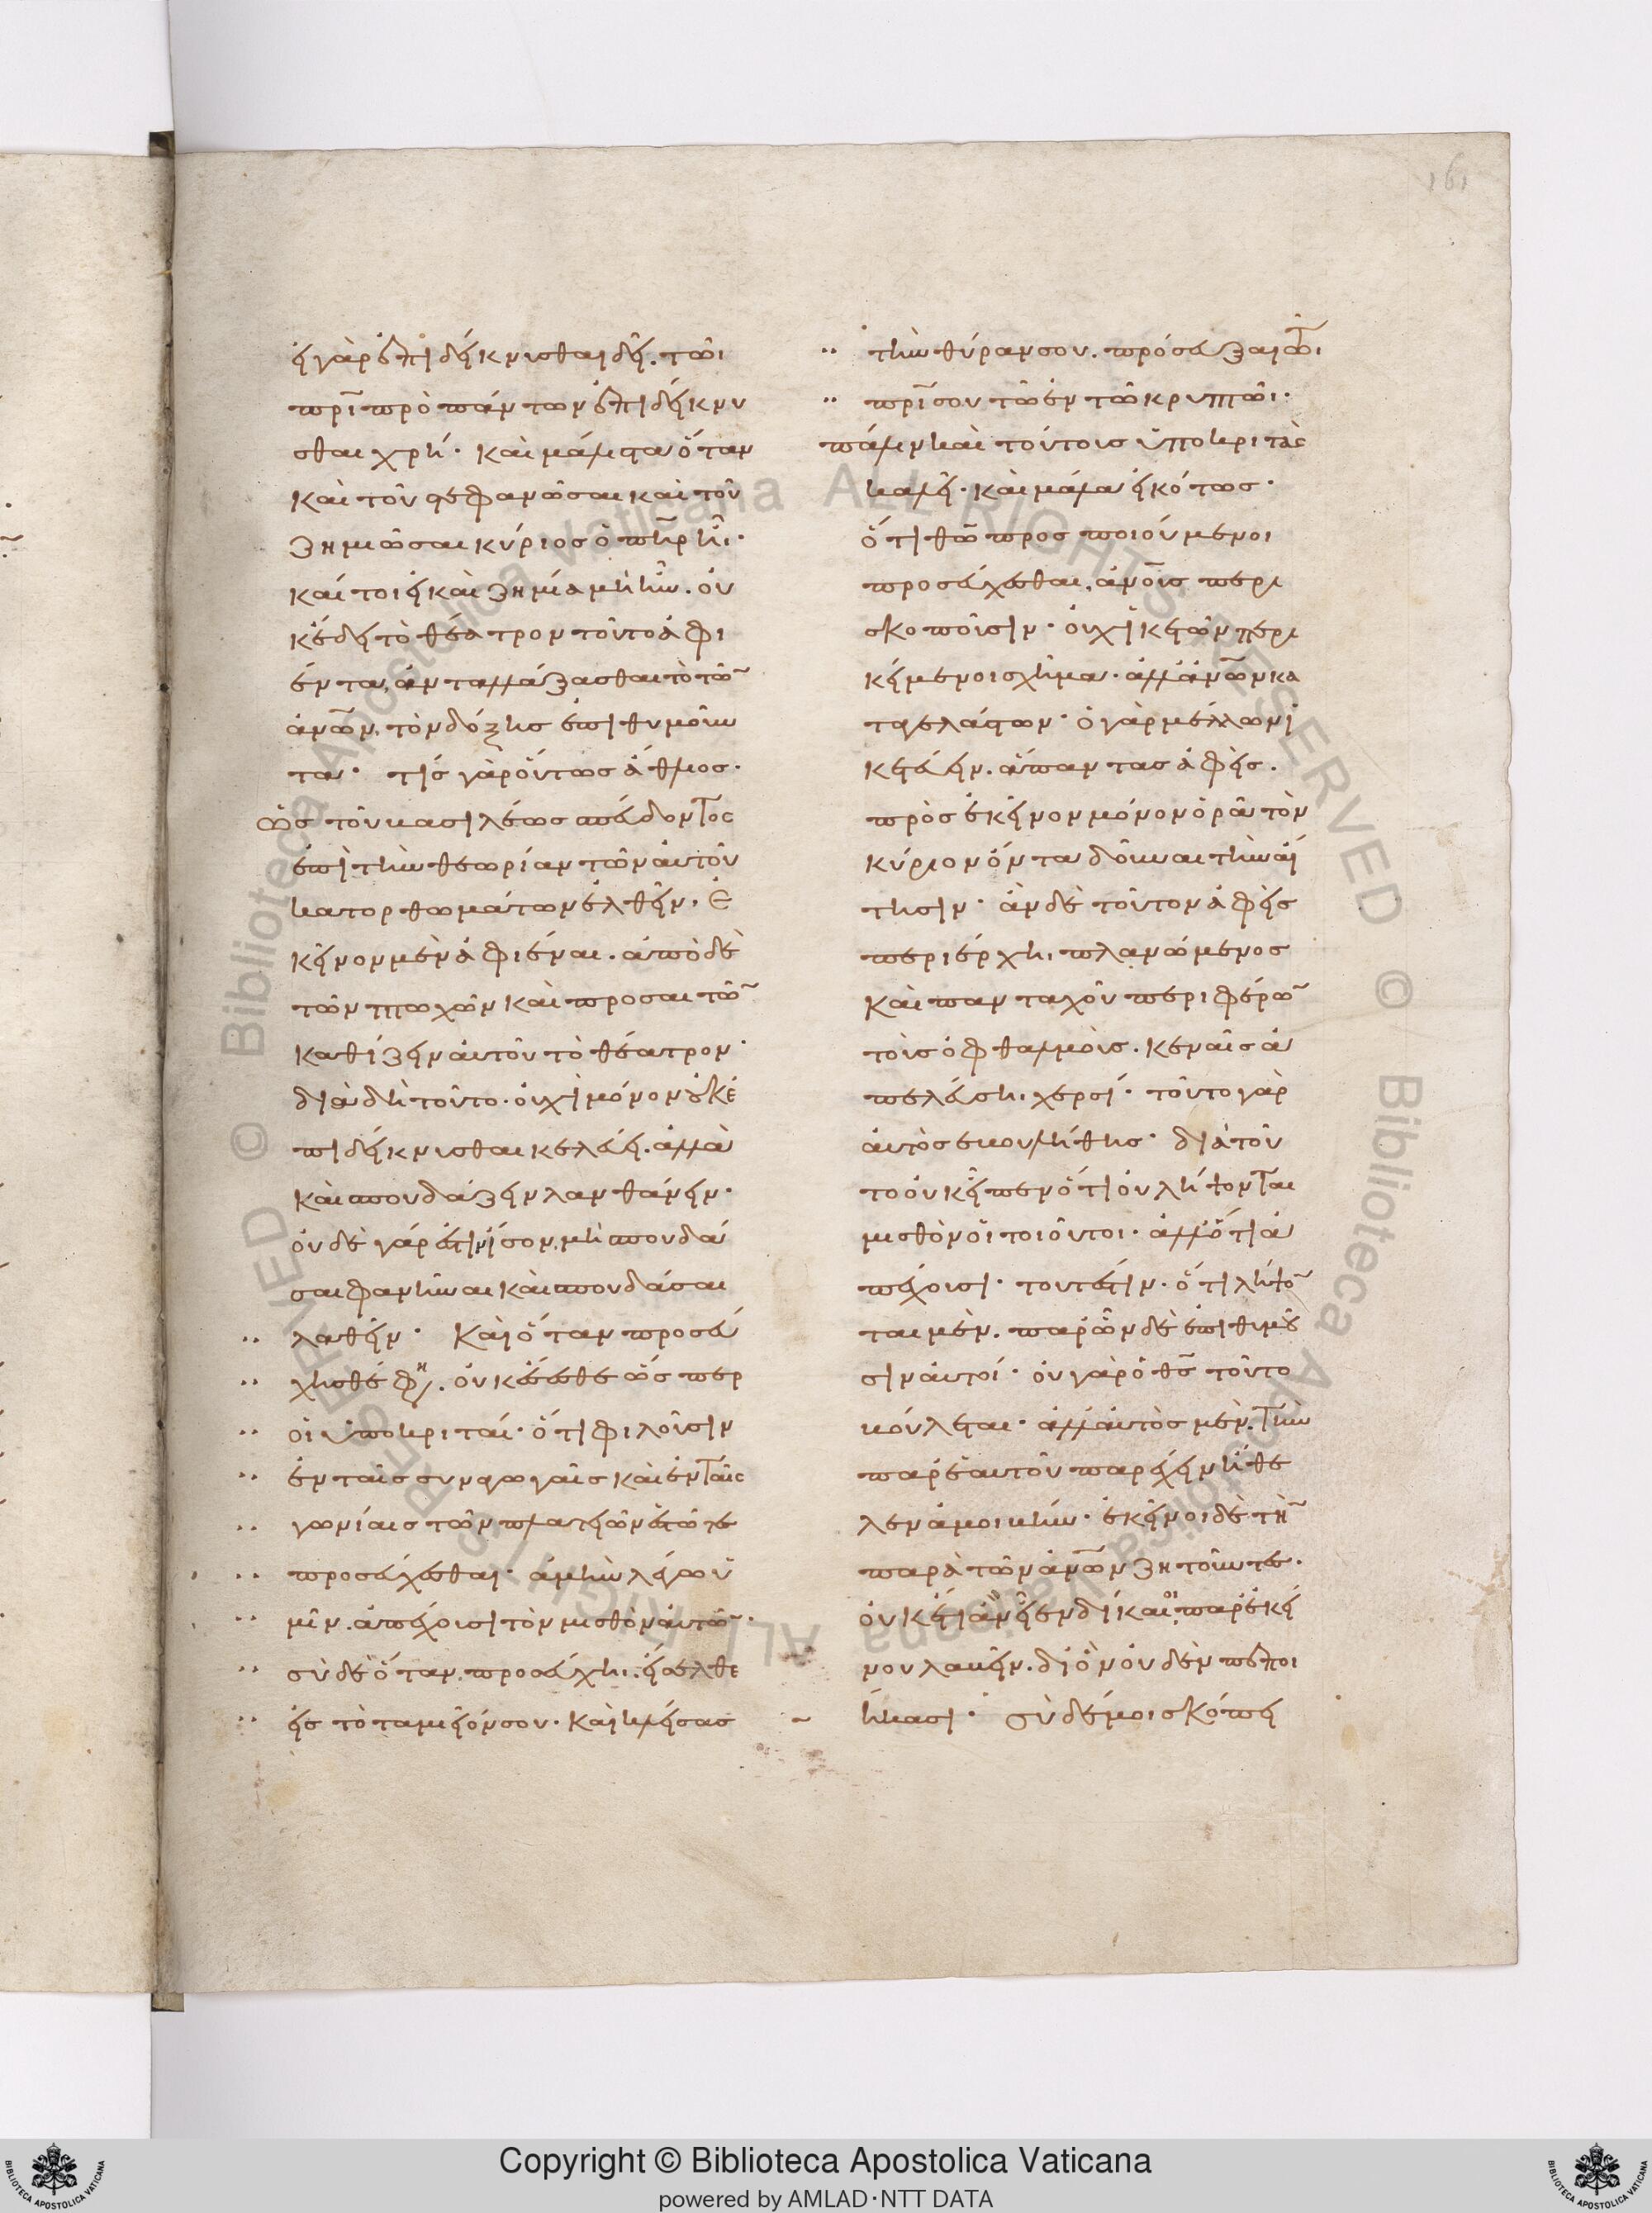 161
εἰ γὰρ ἐπιδείκνυσθαι δεῖ. τῶι
πρὶ πρὸ πάντων ἐπιδείκνυ
σθαι χρή· καὶ μάλιστα ὅταν
καὶ τοῦ στεφανῶσαι καὶ τοῦ
ζημιῶσαι κύριος ὁ πὴρ ἦι·
καίτοι εἰ καὶ ζημία μὴ ἦν. οὐ
κ ἔδει τὸ θέατρον τοῦτο ἀφι
έντα, ἀνταλλάξασθαι τὸ τῶ
ἀνῶν, τὸν δόξης ἐπιθυμοῦν
τα· τίς γὰρ οὕτως ἄθλιος·
ὡς τοῦ βασιλέως σπεύδοντος
ἐπὶ τὴν θεωρίαν τῶν αὐτοῦ
κατορθωμάτων ἐλθεῖν, ἐ
κεῖνον μὲν ἀφιέναι. ἀπὸ δὲ
τῶν πτωχῶν καὶ προσαιτῶ
καθίζειν αὐτοῦ τὸ θέατρον·
διὰ δὴ τοῦτο. οὐχὶ μόνον οὐκ ἐ
πιδείκνυσθαι κελεύει. ἀλλὰ
καὶ σπουδάζειν λανθάνειν·
οὐδὲ γάρ ἐστιν ἴσον, μὴ σπουδά
σαι φανῆναι καὶ σπουδάσαι
λαθεῖν· Καὶ ὅταν προσεύ
χησθέ φη. οὐκ ἔσεσθε ὥσπερ
οἱ ὑποκριταί· ὅτι φιλοῦσιν
ἐν ταῖς συναγωγαῖς καὶ ἐν ταῖς
γωνίαις τῶν πλατειῶν ἑστῶτες
προσεύχεσθαι· ἀμὴν λέγω ὑ
μῖν. ἀπέχουσι τὸν μισθὸν αὐτῶ·
σὺ δὲ ὅταν προσεύχηι. εἴσελθε
εἰς τὸ ταμεῖόν σου. καὶ κλείσας
τὴν θύραν σου. πρόσευξαι τῶι
πρί σου τῶ ἐν τῶ κρυπτῶι·
πάλιν καὶ τούτους ὑποκριτὰς
καλεῖ· καὶ μάλα εἰκότως·
ὅτι θῶ προσποιούμενοι
προσεύχεσθαι, ἀνοις περι
σκοποῦσιν· οὐχ ἱκετῶν περι
κείμενοι σχῆμα· ἀλλ' ἀνῶν κα
ταγελάστων· ὁ γὰρ μέλλων ἱ
κετεύειν. ἅπαντας ἀφεὶς.
πρὸς ἐκεῖνον μόνον ὁρᾶ τὸν
κύριον ὄντα δοῦναι τὴν αἴ
τησιν· ἂν δὲ τοῦτον ἀφεὶς
περιέρχη, πλανώμενος
καὶ πανταχοῦ περιφέρω
τοὺς ὀφθαλμοὺς. κεναῖς ἀ
πελεύση, χερσί· τοῦτο γὰρ
αὐτὸς ἐβουλήθης· διὰ τοῦ
το οὐκ εἶπεν ὅτι οὐ λήψονται
μισθὸν οἱ τοιοῦτοι· ἀλλ' ὅτι ἀ
πέχουσι· τουτέστιν. ὅτι λήψο
ται μὲν. παρ' ὧν δὲ ἐπιθυμοῦ
σιν αὐτοί· οὐ γὰρ ὁ θς τοῦτο
βούλεται· ἀλλ' αὐτὸς μὲν. τὴν
παρ' ἑαυτοῦ παρέχειν ἤθε
λεν ἀμοιβήν· ἐκεῖνοι δὲ τὴ
παρὰ τῶν ἀνῶν ζητοῦντες.
οὐκέτι ἂν εἶεν δίκαιοι παρ' ἐκεί
νου λαβεῖν. δι' ὃν οὐδὲν πεποι
ήκασι· σὺ δέ μοι σκόπει
Copyright © Biblioteca Apostolica Vaticana
powered by AMLAD·NTT DATA